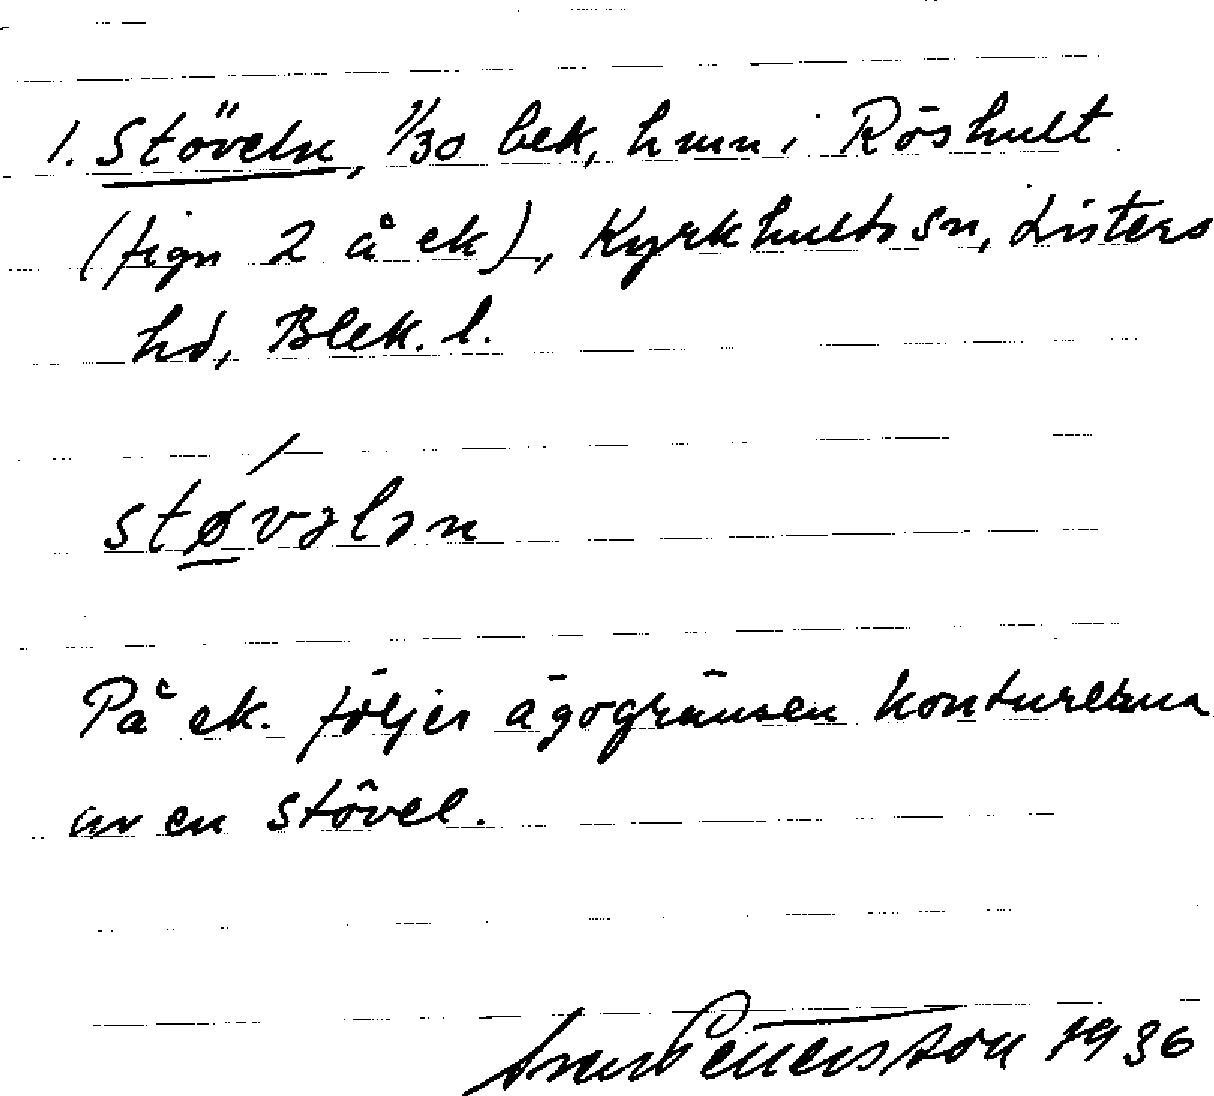 1. Stöveln, 1/30 bek, hmn i Röshult
(fign 2 å ek), Kyrkhults sn, Listers
hd, Blek. l.
støvələn
På ek. följer ägogränsen konturerna
av en stövel.
Pettersson 1936